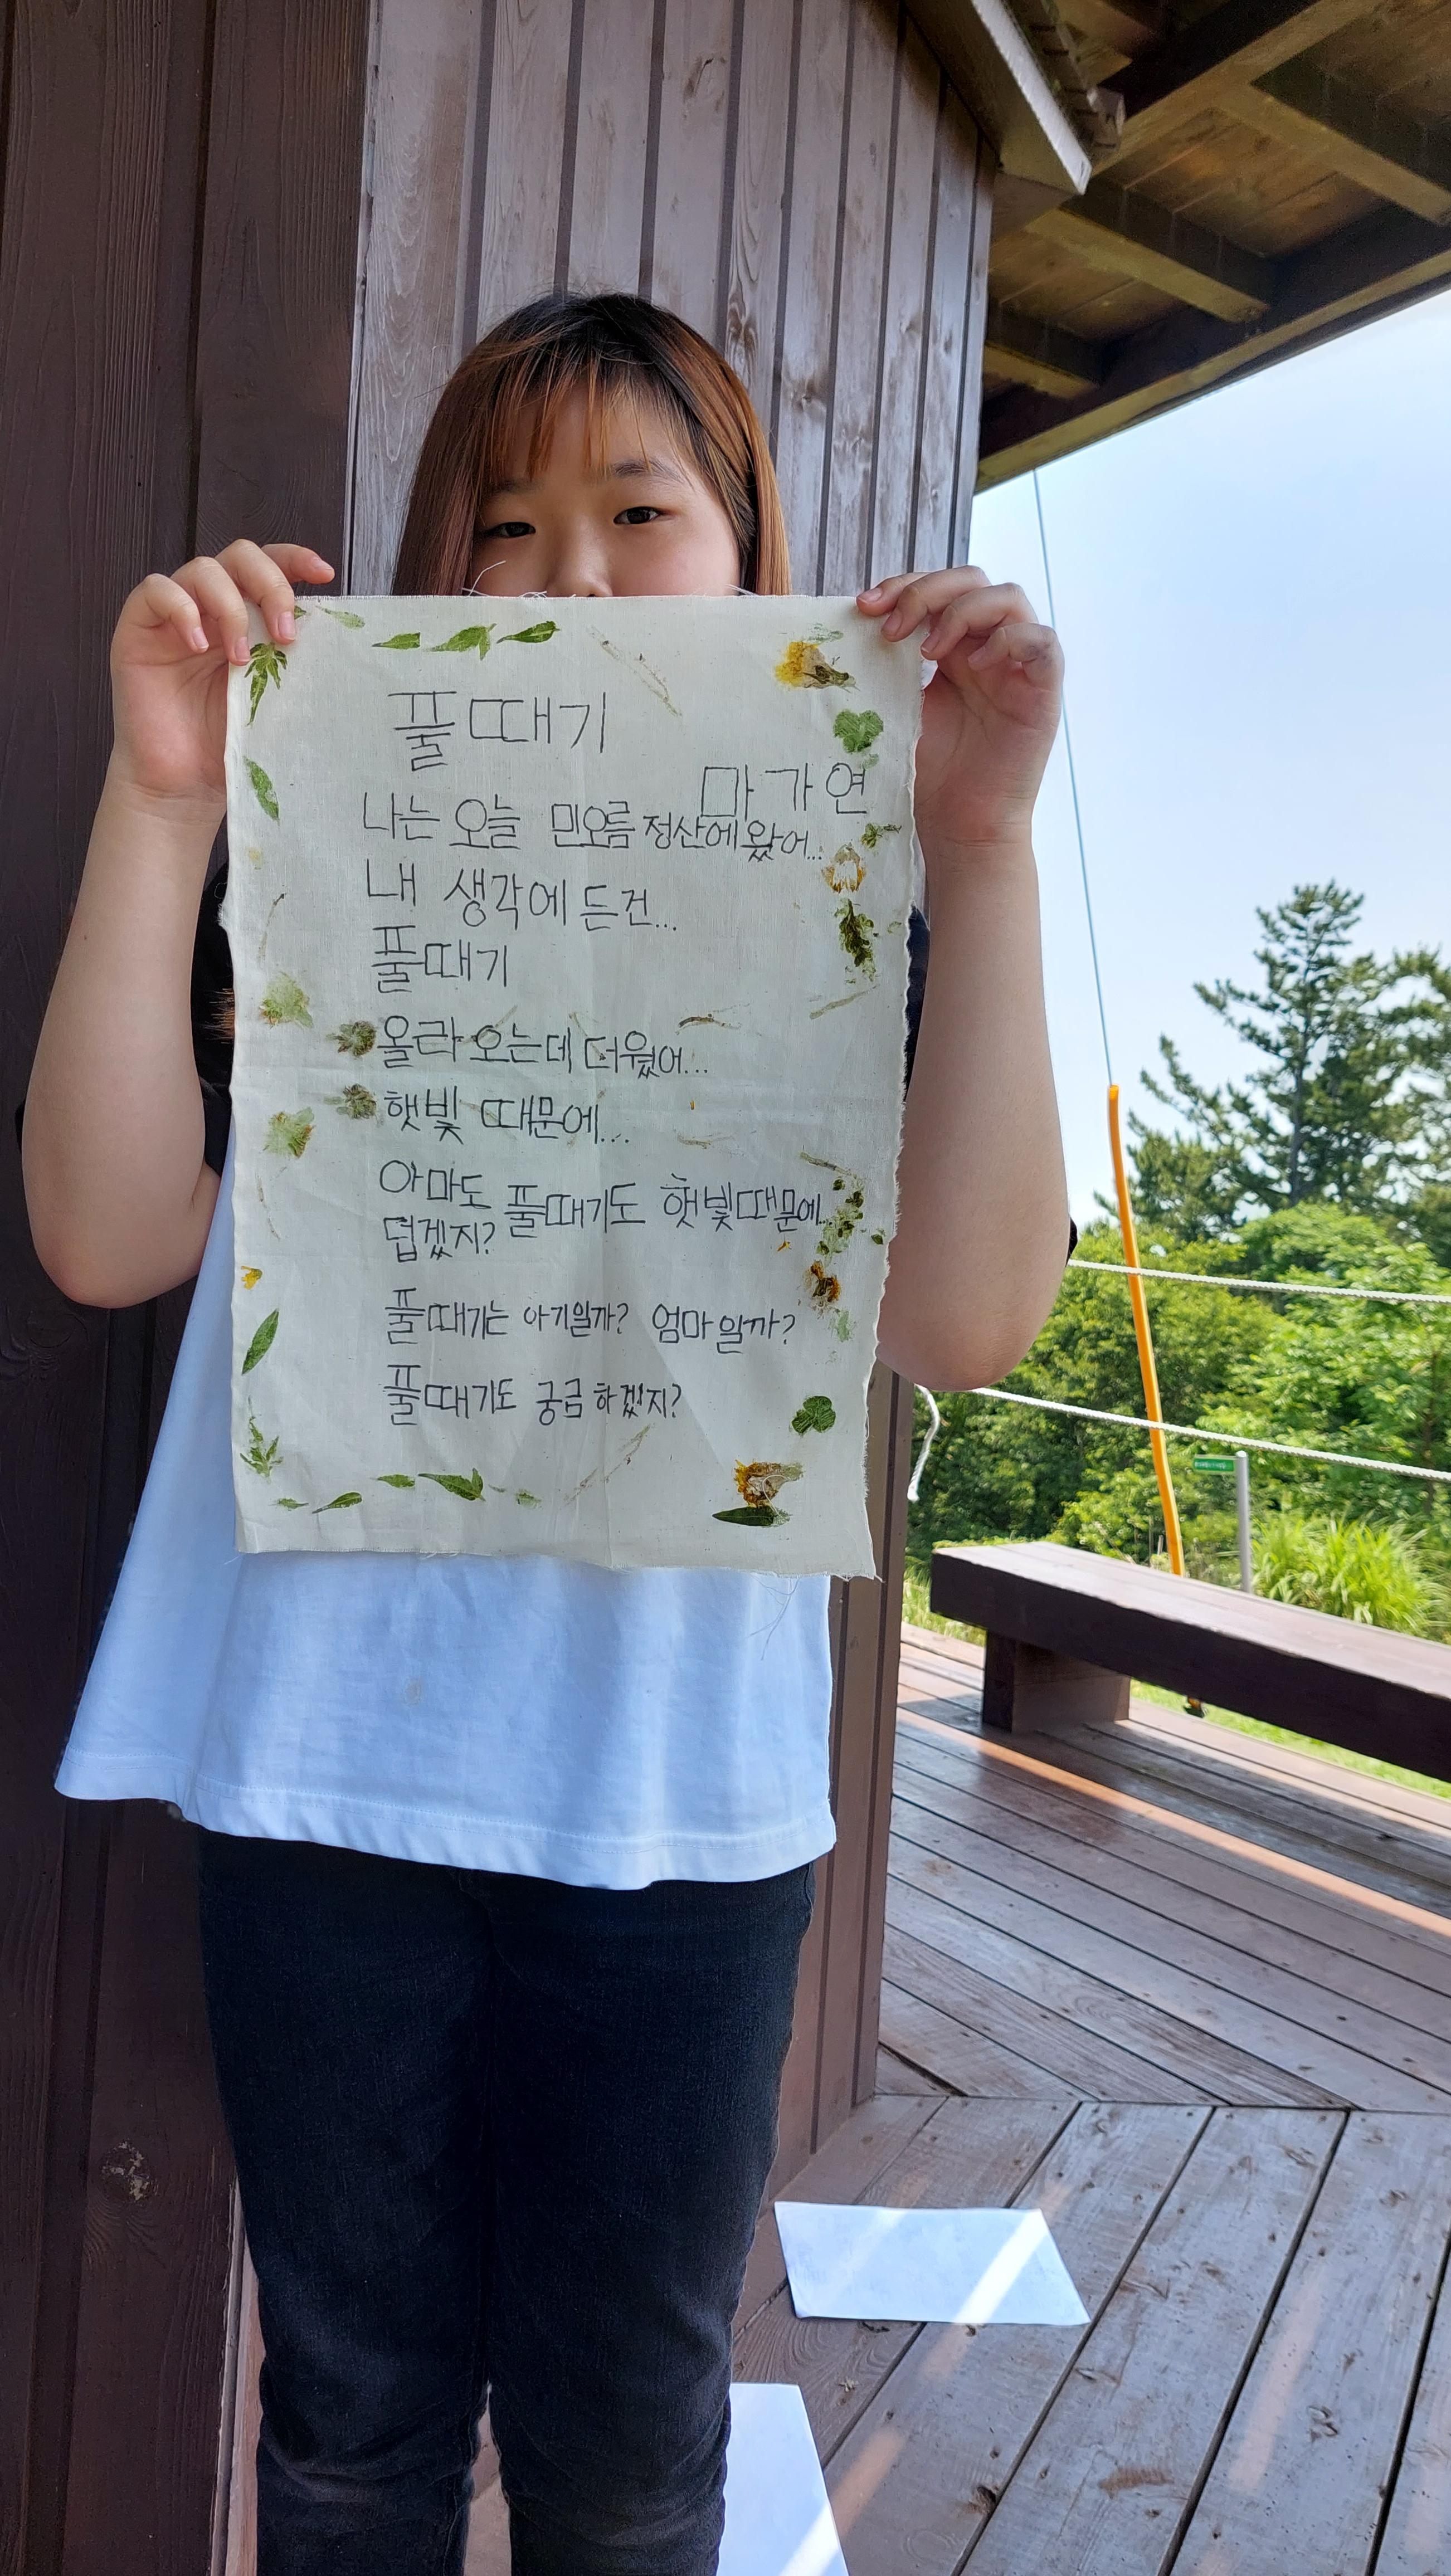 풀때기
마가연
나는 오늘 민오름 정산에 왔어...
내 생각에 든건...
풀때기
올라 오는데 더웠어...
햇빛 때문에...
아마도 풀때기도 햇빛때문에...
덥겠지?
풀때기는 아기일까? 엄마일까?
풀때기도 궁금하겠지?